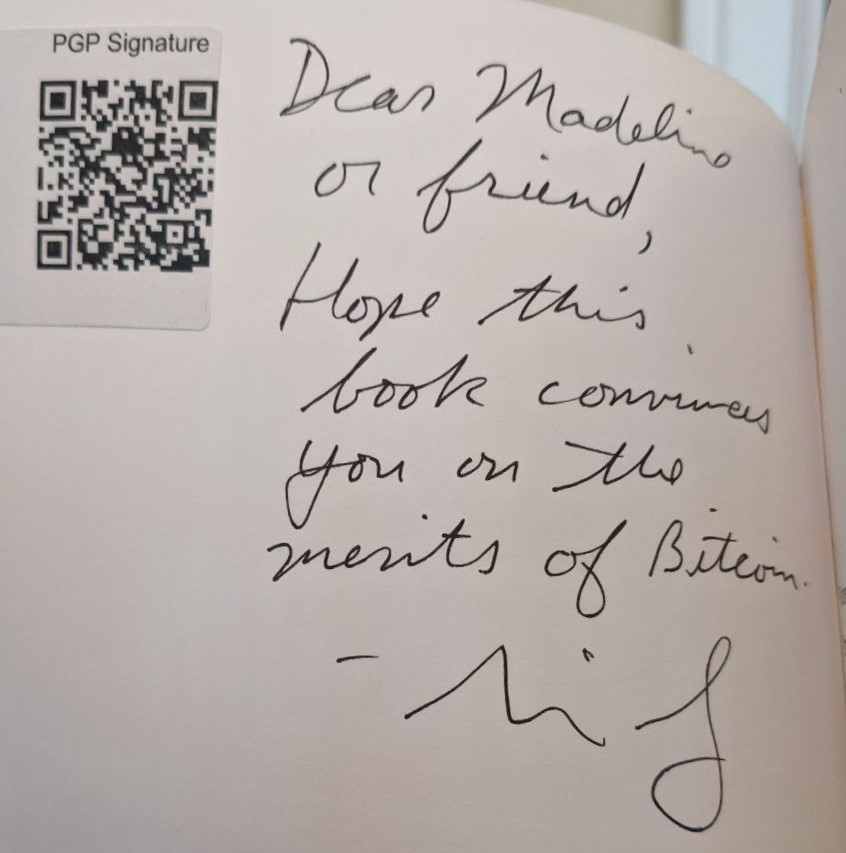 PGP Signature
Dear Madeline
or friend,
Hope this
book convinces
you on the
merits of Bitcoin.